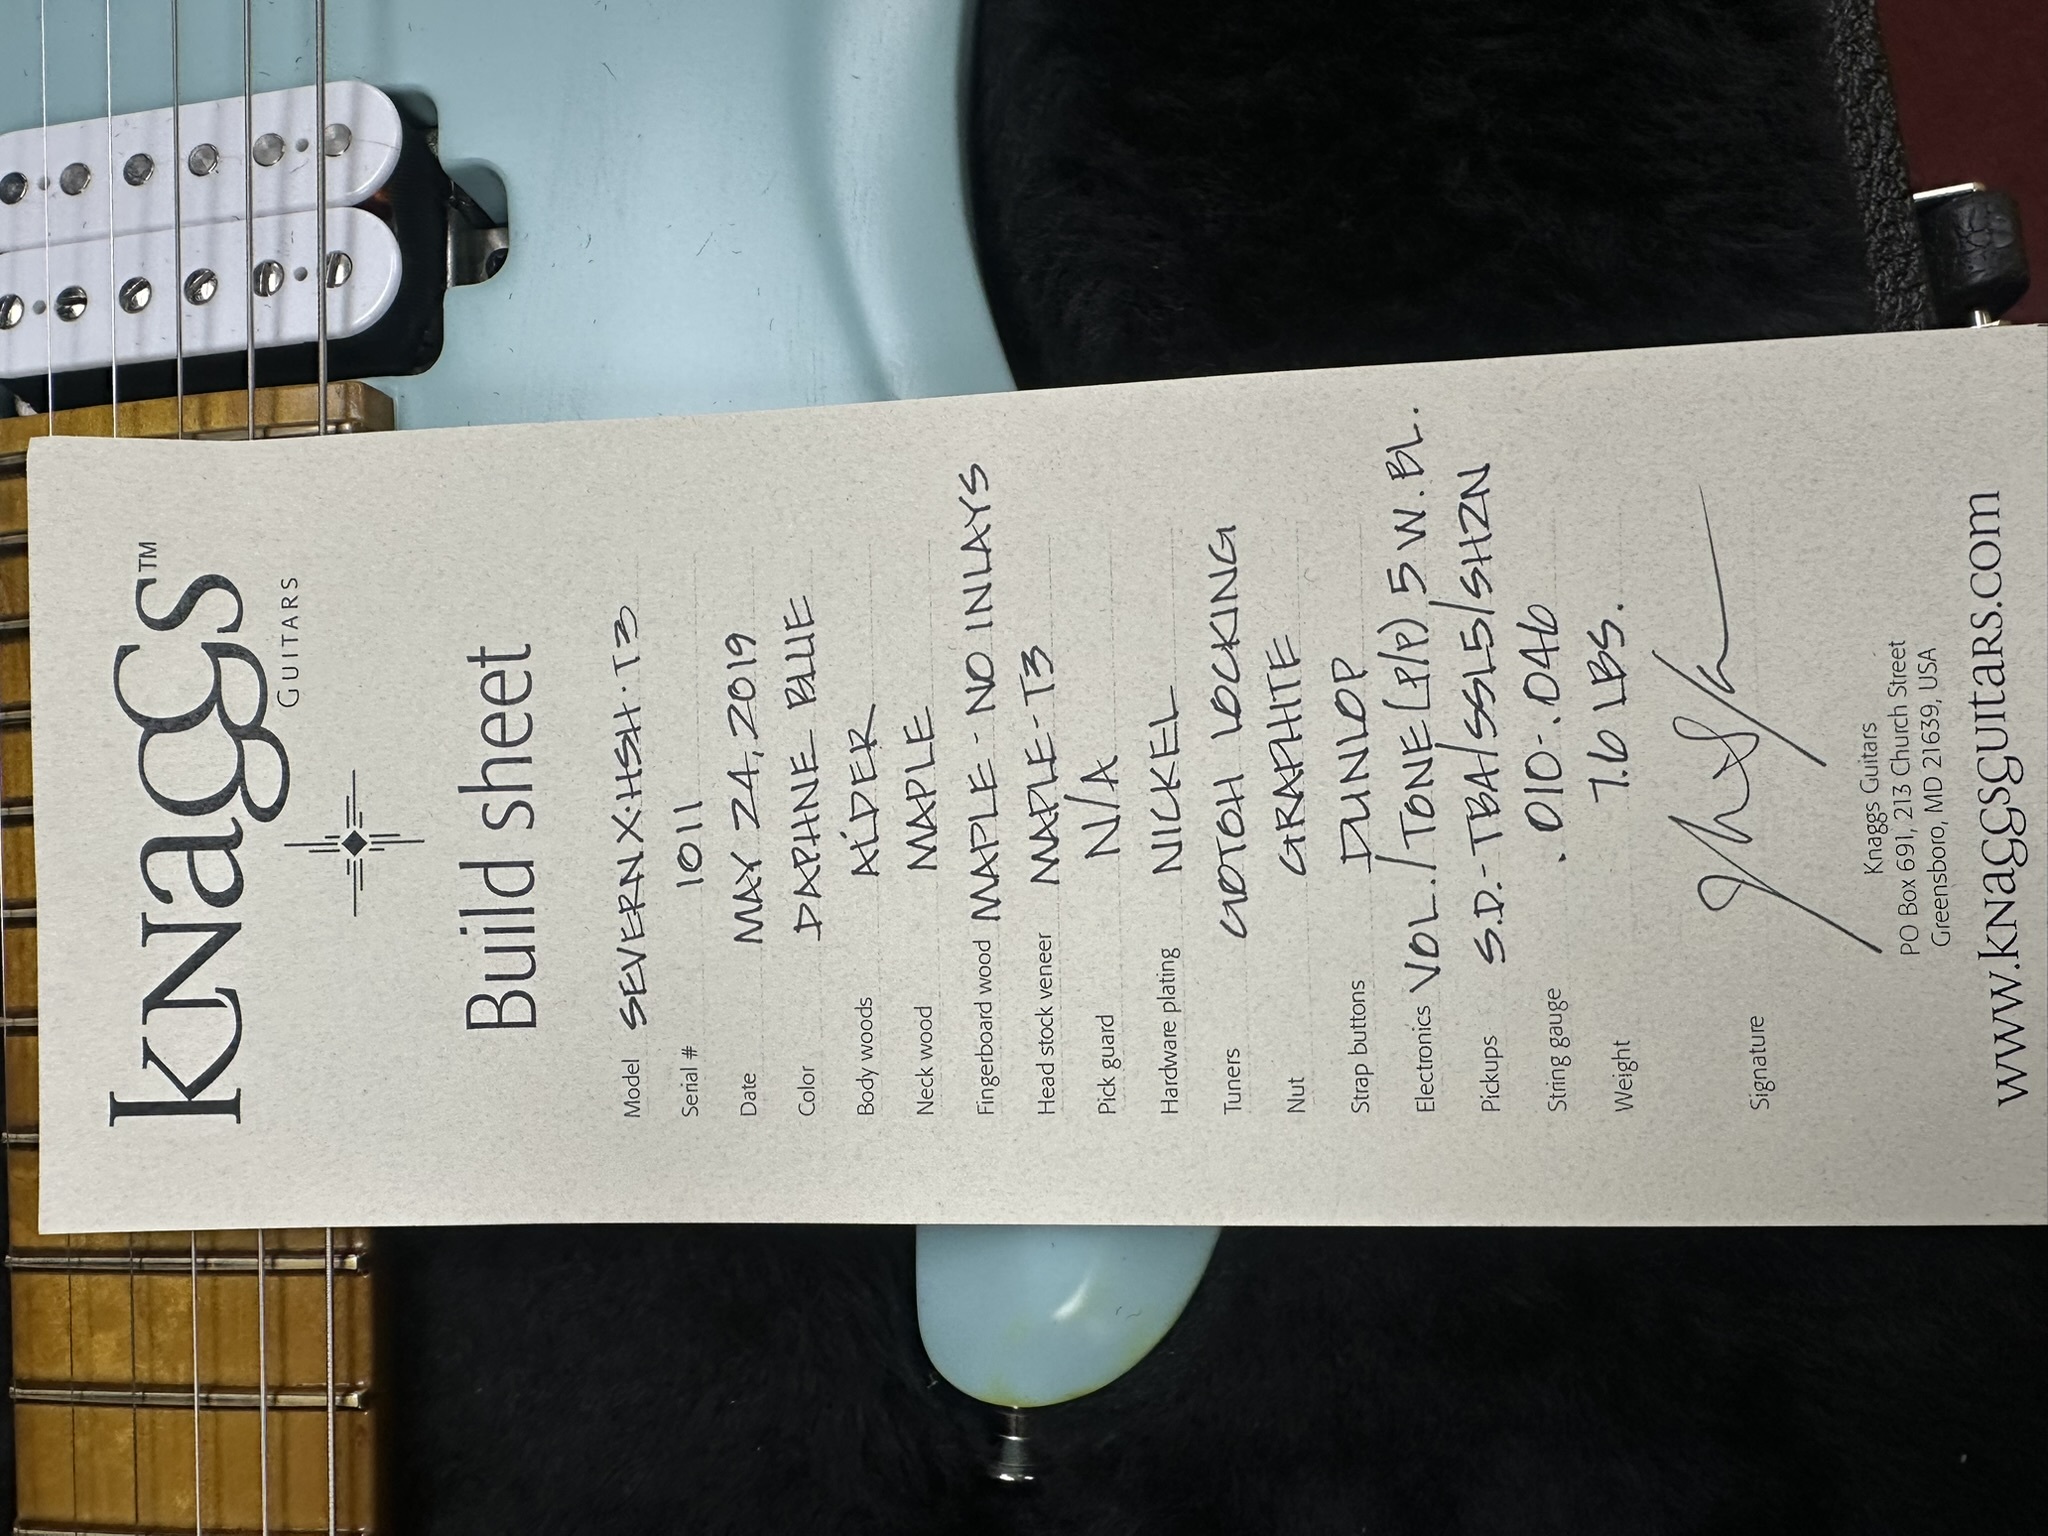 KNaGGS™
GUITARS
Build sheet
Model SEVERN X·HSH·T3
Serial # 1011
Date MAY 24, 2019
Color DAPHNE BLUE
Body woods ALDER
Neck wood MAPLE
Fingerboard wood MAPLE - NO INLAYS
Head stock veneer MAPLE - T3
Pick guard N/A
Hardware plating NICKEL
Tuners GOTOH LOCKING
Nut GRAPHITE
Strap buttons DUNLOP
Electronics VOL./TONE (P/P) 5 W. BL.
Pickups S.D.- TBA/SSL5/SHZN
String gauge .010-.046
Weight 7.6 LBS.
Signature
Knaggs Guitars
PO Box 691, 213 Church Street
Greensboro, MD 21639, USA
www.KNaGGSGUITaRS.com